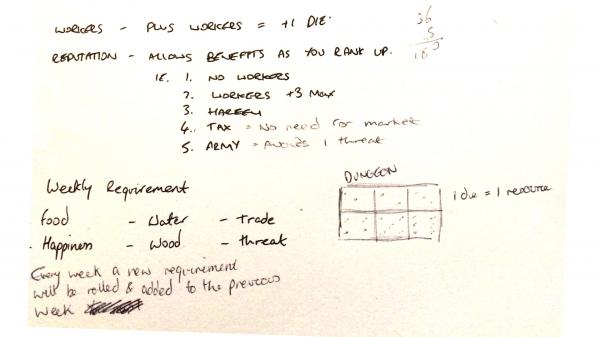 WORKERS - PLUS WORKERS = +1 DIE.
36
5
180
REPUTATION - ALLOWS BENEFITS AS YOU RANK UP.
IE. 1. NO WORKERS
2. WORKERS +3 MAX
3. HAREEM
4. TAX = No need for market
5. ARMY = Avoids 1 threat
DUNGEON
1 die = 1 resource
Weekly Requirement
Food - Water - Trade
Happiness - Wood - threat
Every week a new requirement
will be rolled & added to the previous
week